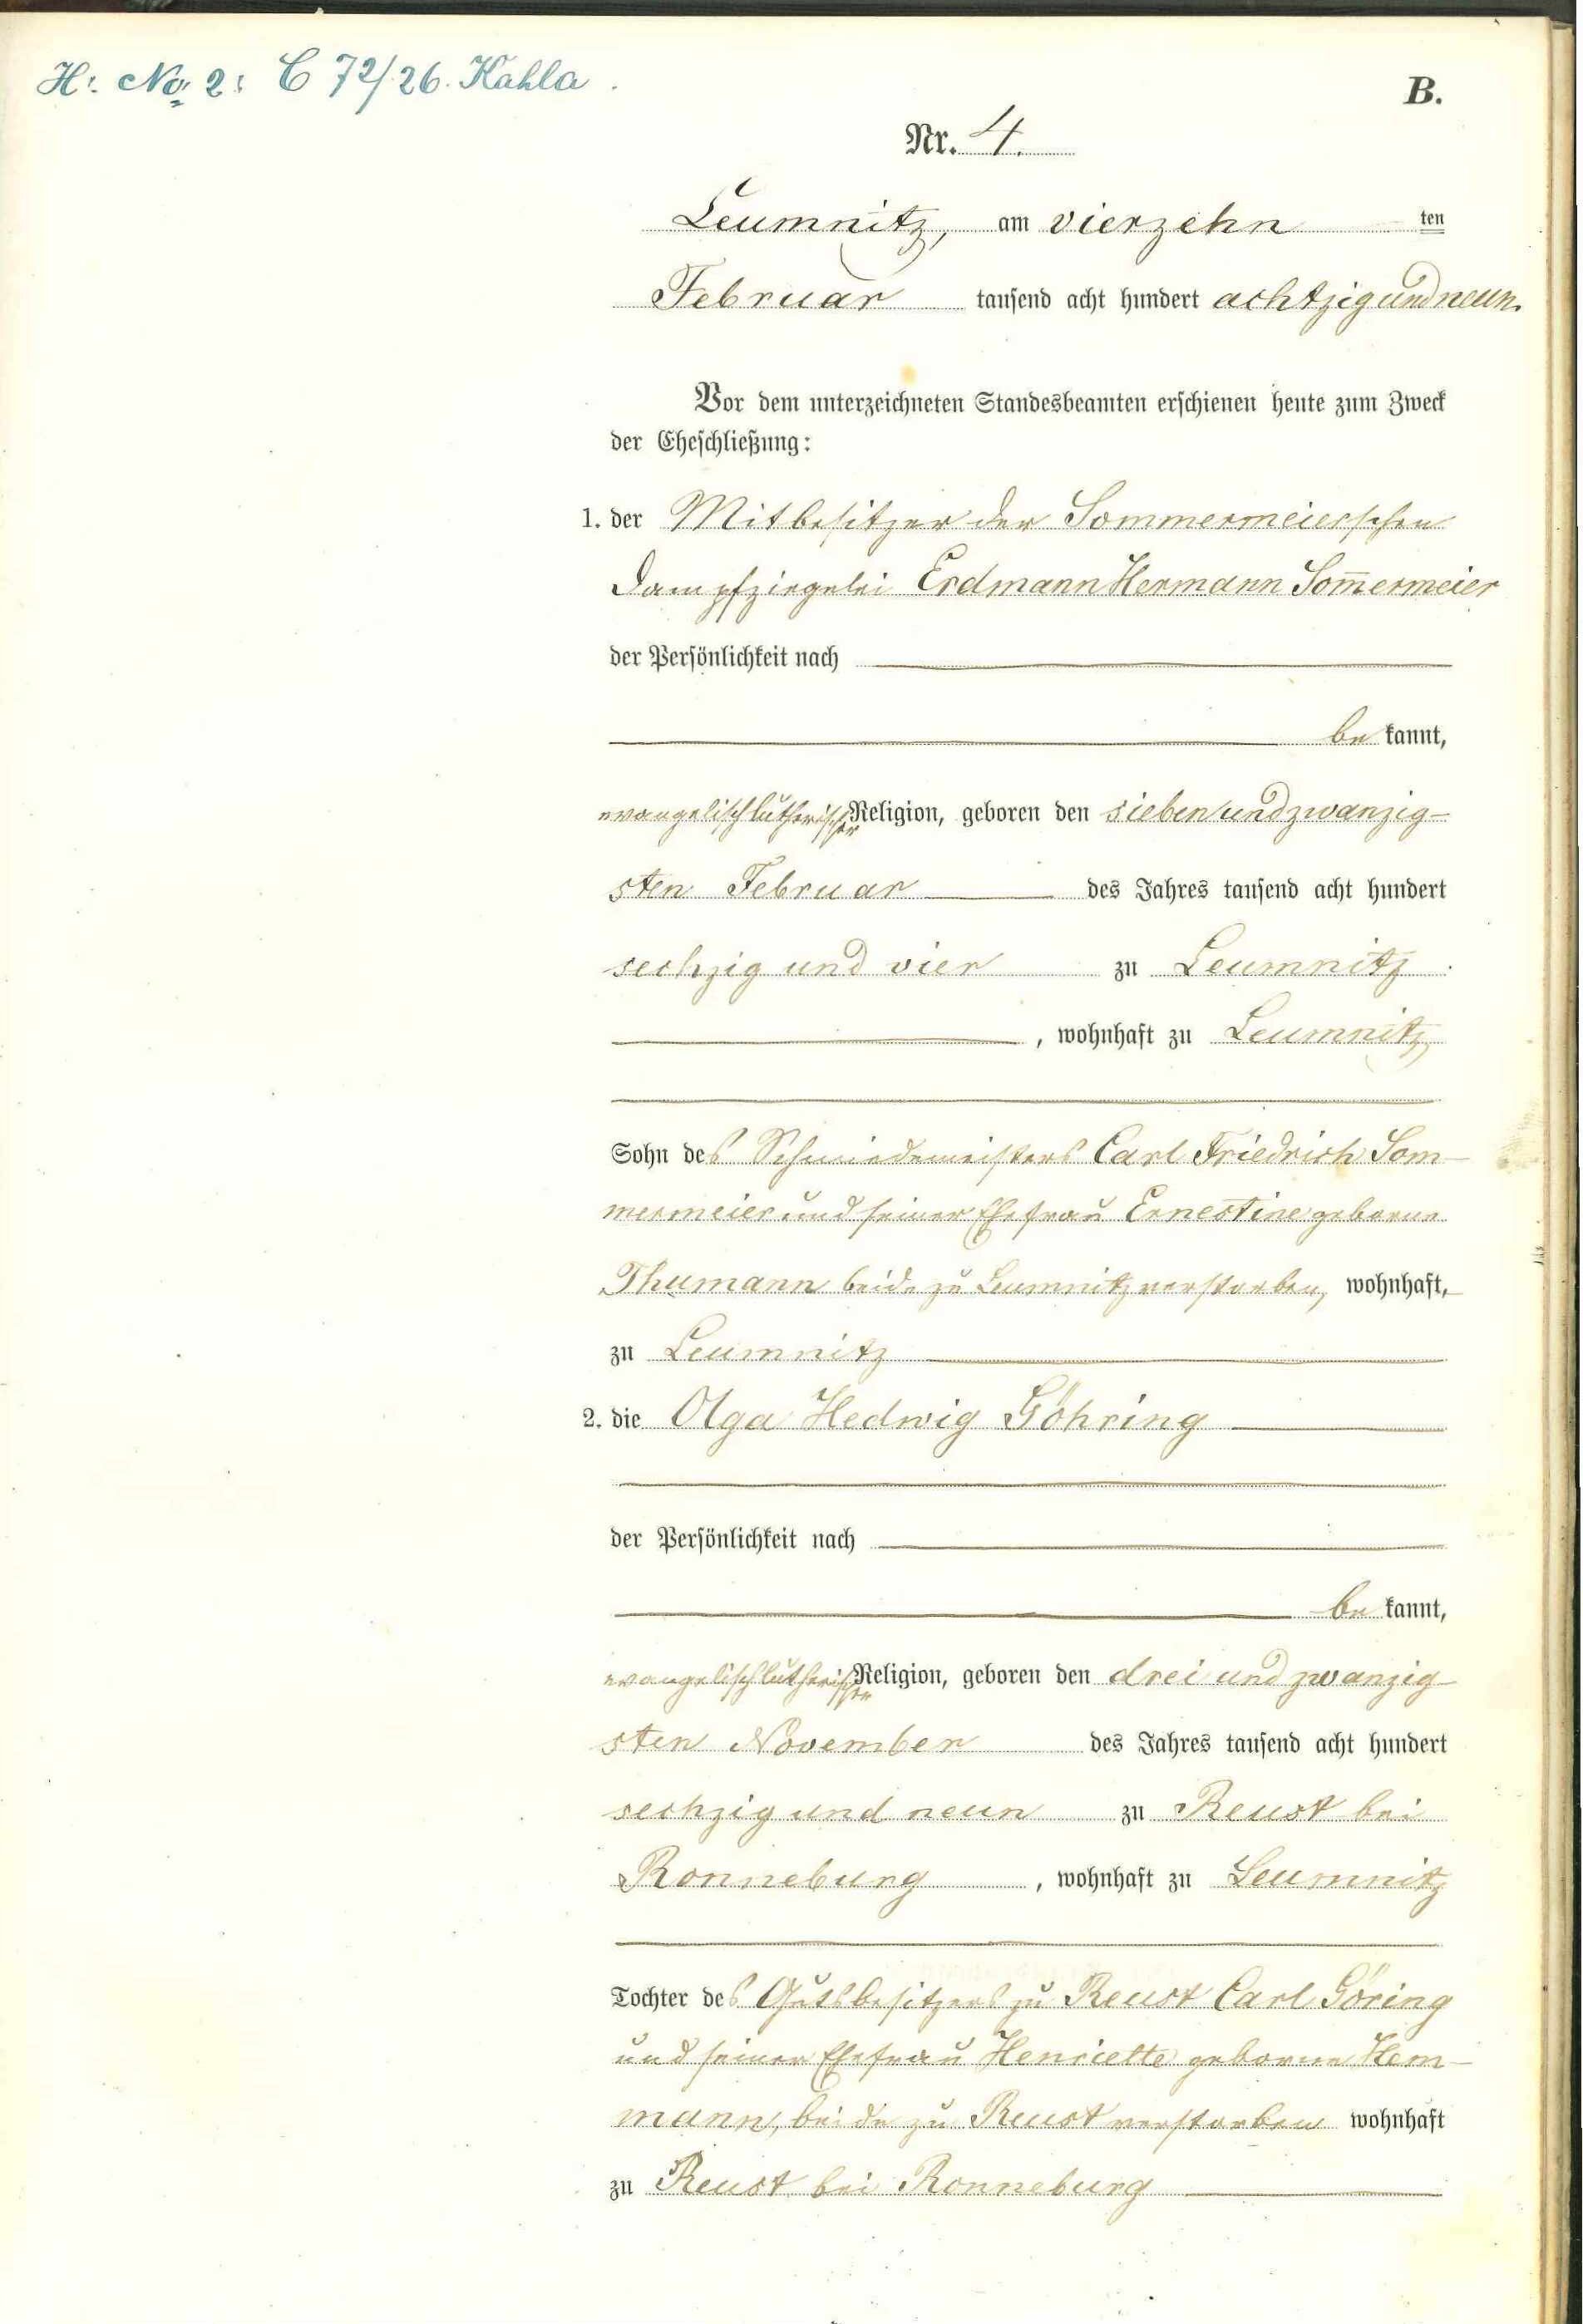 H: No. 2: C 72/26. Kahla.
B.
Nr. 4.
Leumnitz, am vierzehn ten
Februar tausend acht hundert achtzig und neun.
Vor dem unterzeichneten Standesbeamten erschienen heute zum Zweck
der Eheschließung:
1. der Mitbesitzer der Sommermeierschen
Dampfziegelei Erdmann Hermann Som̄ermeier
der Persönlichkeit nach
be kannt,
evangelisch lutherischer Religion, geboren den sieben und zwanzig-
sten Februar des Jahres tausend acht hundert
sechzig und vier zu Leumnitz
, wohnhaft zu Leumnitz
Sohn des Schmiedemeisters Carl Friedrich Som-
mermeier und seiner Ehefrau Ernestine geborne
Thumann beide zu Leumnitz verstorben, wohnhaft,
zu Leumnitz
2. die Olga Hedwig Göhring
der Persönlichkeit nach
be kannt,
evangelisch lutherischer Religion, geboren den drei und zwanzig-
sten November des Jahres tausend acht hundert
sechzig und neun zu Reust bei
Ronneburg , wohnhaft zu Leumnitz
Tochter des Gutsbesitzers zu Reust Carl Göring
und seiner Ehefrau Henriette geborne Hem-
mann, beide zu Reust verstorben wohnhaft
zu Reust bei Ronneburg